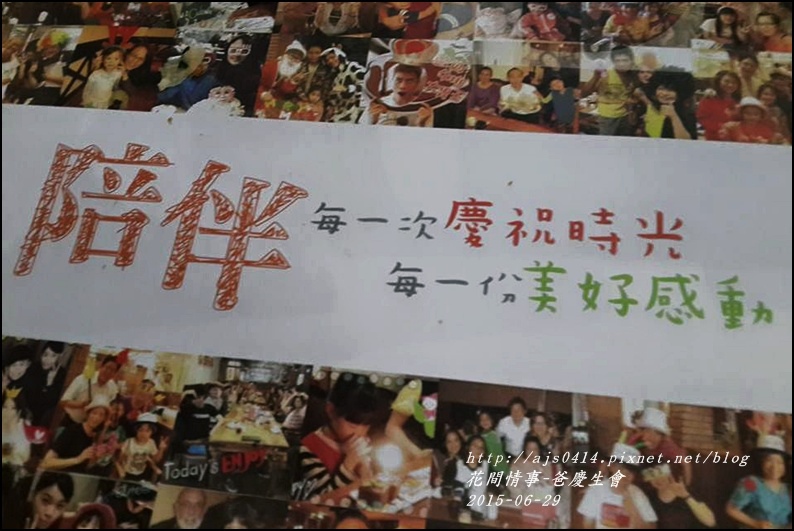 陪伴
每一次慶祝時光
每一份美好感動
Today's ENJOY
http://ajs0414.pixnet.net/blog
花間情事-爸慶生會
2015-06-29